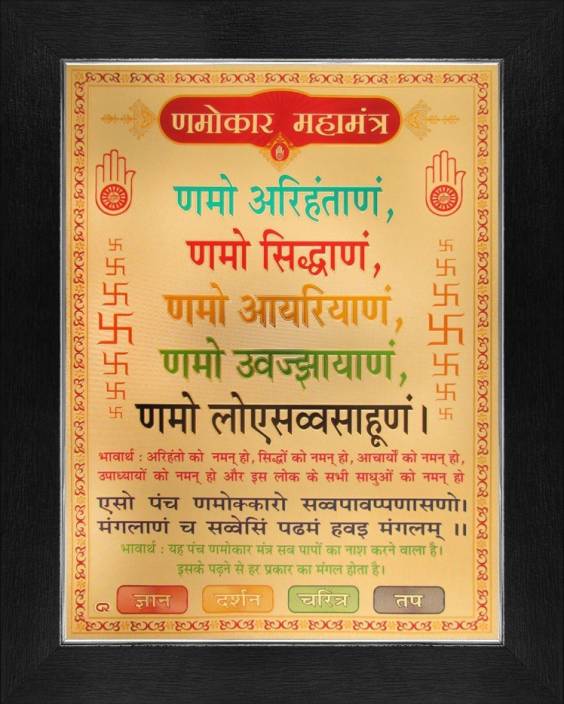 णमोकार महामंत्र
णमो अरिहंताणं,
णमो सिद्धाणं,
णमो आयरियाणं,
णमो उवज्झायाणं,
णमो लोएसव्वसाहूणं।
भावार्थ : अरिहंतो को नमन् हो, सिद्धों को नमन् हो, आचार्यो को नमन् हो,
उपाध्यायों को नमन् हो और इस लोक के सभी साधुओं को नमन् हो
एसो पंच णमोक्कारो सव्वपावप्पणासणो।
मंगलाणं च सव्वेसिं पढमं हवइ मंगलम् ।।
भावार्थ : यह पंच णमोकार मंत्र सब पापों का नाश करने वाला है।
इसके पढ़ने से हर प्रकार का मंगल होता है।
ज्ञान दर्शन चरित्र तप